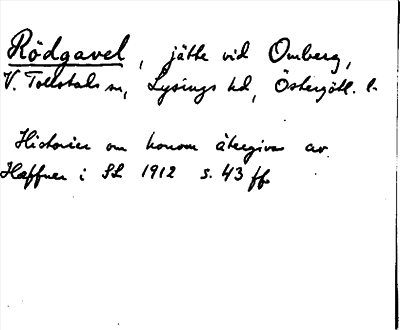 Rödgavel, jätte vid Omberg,
V. Tollstads sn, Lysings hd, Östergötl. l.
Historier om honom återgivna av
Hæffner i SL 1912 s. 43 ff.